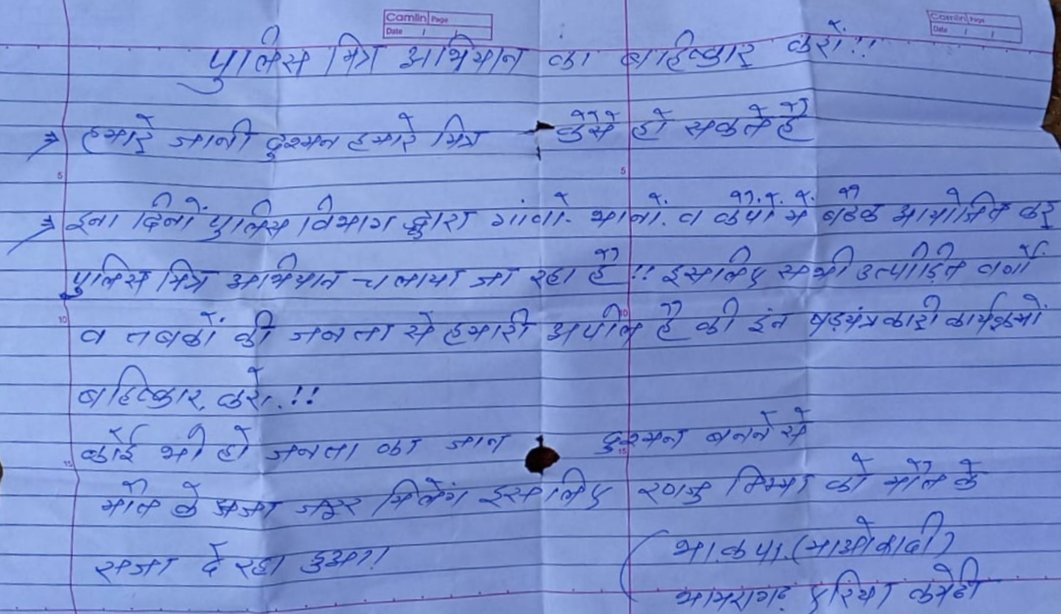 Camlin Page
Date / /
Camlin Page
Date / /
पुलिस मित्र अभियान का बहिष्कार करों!!
हमारे जानी दुश्मन हमारे मित्र कैसे हो सकते है
इन दिनों पुलिस विभाग द्वारा गांवों में बैठक आयोजित कर
पुलिस मित्र अभियान चलाया जा रहा है!! इसलिए सभी उत्पीड़ित वर्गो
व तबकों की जनता से हमारी अपील है की इन षड़यंत्रकारी कार्यक्रमों
बहिष्कार करो.!!
कोई भी हो जनता का जान दुश्मन बनने से
मौत के सजा जरूर मिलेगा इसलिए को मौत के
सजा दे रहा हुआ।
भा.क.पा.(माओवादी)
भामरागड़ एरिया कमेटी